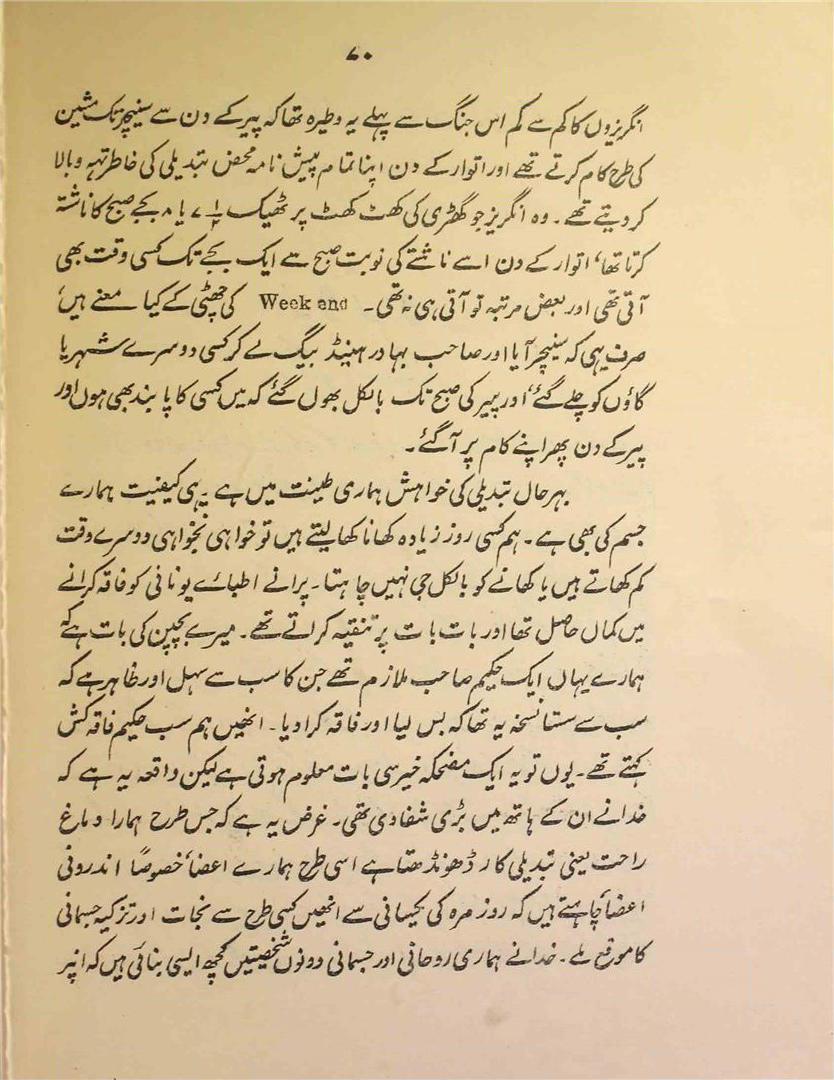 ۷۰
انگریزوں کا کم سے کم اس جنگ سے پہلے یہ وطیرہ تھا کہ پیر کے دن سے سنیچر تک مشین
کی طرح کام کرتے تھے اور اتوار کے دن اپنا تمام پیش نامہ محض تبدیلی کی خاطر تہہ و بالا
کر دیتے تھے۔ وہ انگریز جو گھڑی کی کھٹ کھٹ پر ٹھیک ۷½ یا ۸ بجے صبح کا ناشتہ
کرتا تھا، اتوار کے دن اسے ناشتے کی نوبت صبح سے ایک بجے تک کسی وقت بھی
آتی تھی اور بعض مرتبہ تو آتی ہی نہ تھی۔ Week end کی چھٹی کے کیا معنے ہیں،
صرف یہی کہ سنیچر آیا اور صاحب بہادر ہینڈ بیگ لے کر کسی دوسرے شہر یا
گاؤں کو چلے گئے، اور پیر کی صبح تک بالکل بھول گئے کہ میں کسی کا پابند بھی ہوں اور
پیر کے دن پھر اپنے کام پر آ گئے۔
بہرحال تبدیلی کی خواہش ہماری طینت میں ہے۔ یہی کیفیت ہمارے
جسم کی بھی ہے۔ ہم کسی روز زیادہ کھانا کھا لیتے ہیں تو خواہی نخواہی دوسرے وقت
کم کھاتے ہیں یا کھانے کو بالکل جی نہیں چاہتا۔ پرانے اطبائے یونانی کو فاقہ کرانے
میں کمال حاصل تھا اور بات بات پر تنقیہ کراتے تھے۔ میرے بچپن کی بات ہے کہ
ہمارے یہاں ایک حکیم صاحب ملازم تھے جن کا سب سے سہل اور ظاہر ہے کہ
سب سے سستا نسخہ یہ تھا کہ بس لیا اور فاقہ کرا دیا۔ انھیں ہم سب حکیم فاقہ کش
کہتے تھے۔ یوں تو یہ ایک مضحکہ خیز سی بات معلوم ہوتی ہے لیکن واقعہ یہ ہے کہ
خدا نے ان کے ہاتھ میں بڑی شفا دی تھی۔ غرض یہ ہے کہ جس طرح ہمارا دماغ
راحت یعنی تبدیلی کار ڈھونڈھتا ہے اسی طرح ہمارے اعضأ خصوصاً اندرونی
اعضأ چاہتے ہیں کہ روز مرہ کی یکسانی سے انھیں کسی طرح سے نجات اور تزکیہ جسمانی
کا موقع ملے۔ خدا نے ہماری روحانی اور جسمانی دونوں شخصیتیں کچھ ایسی بنائی ہیں کہ انپر